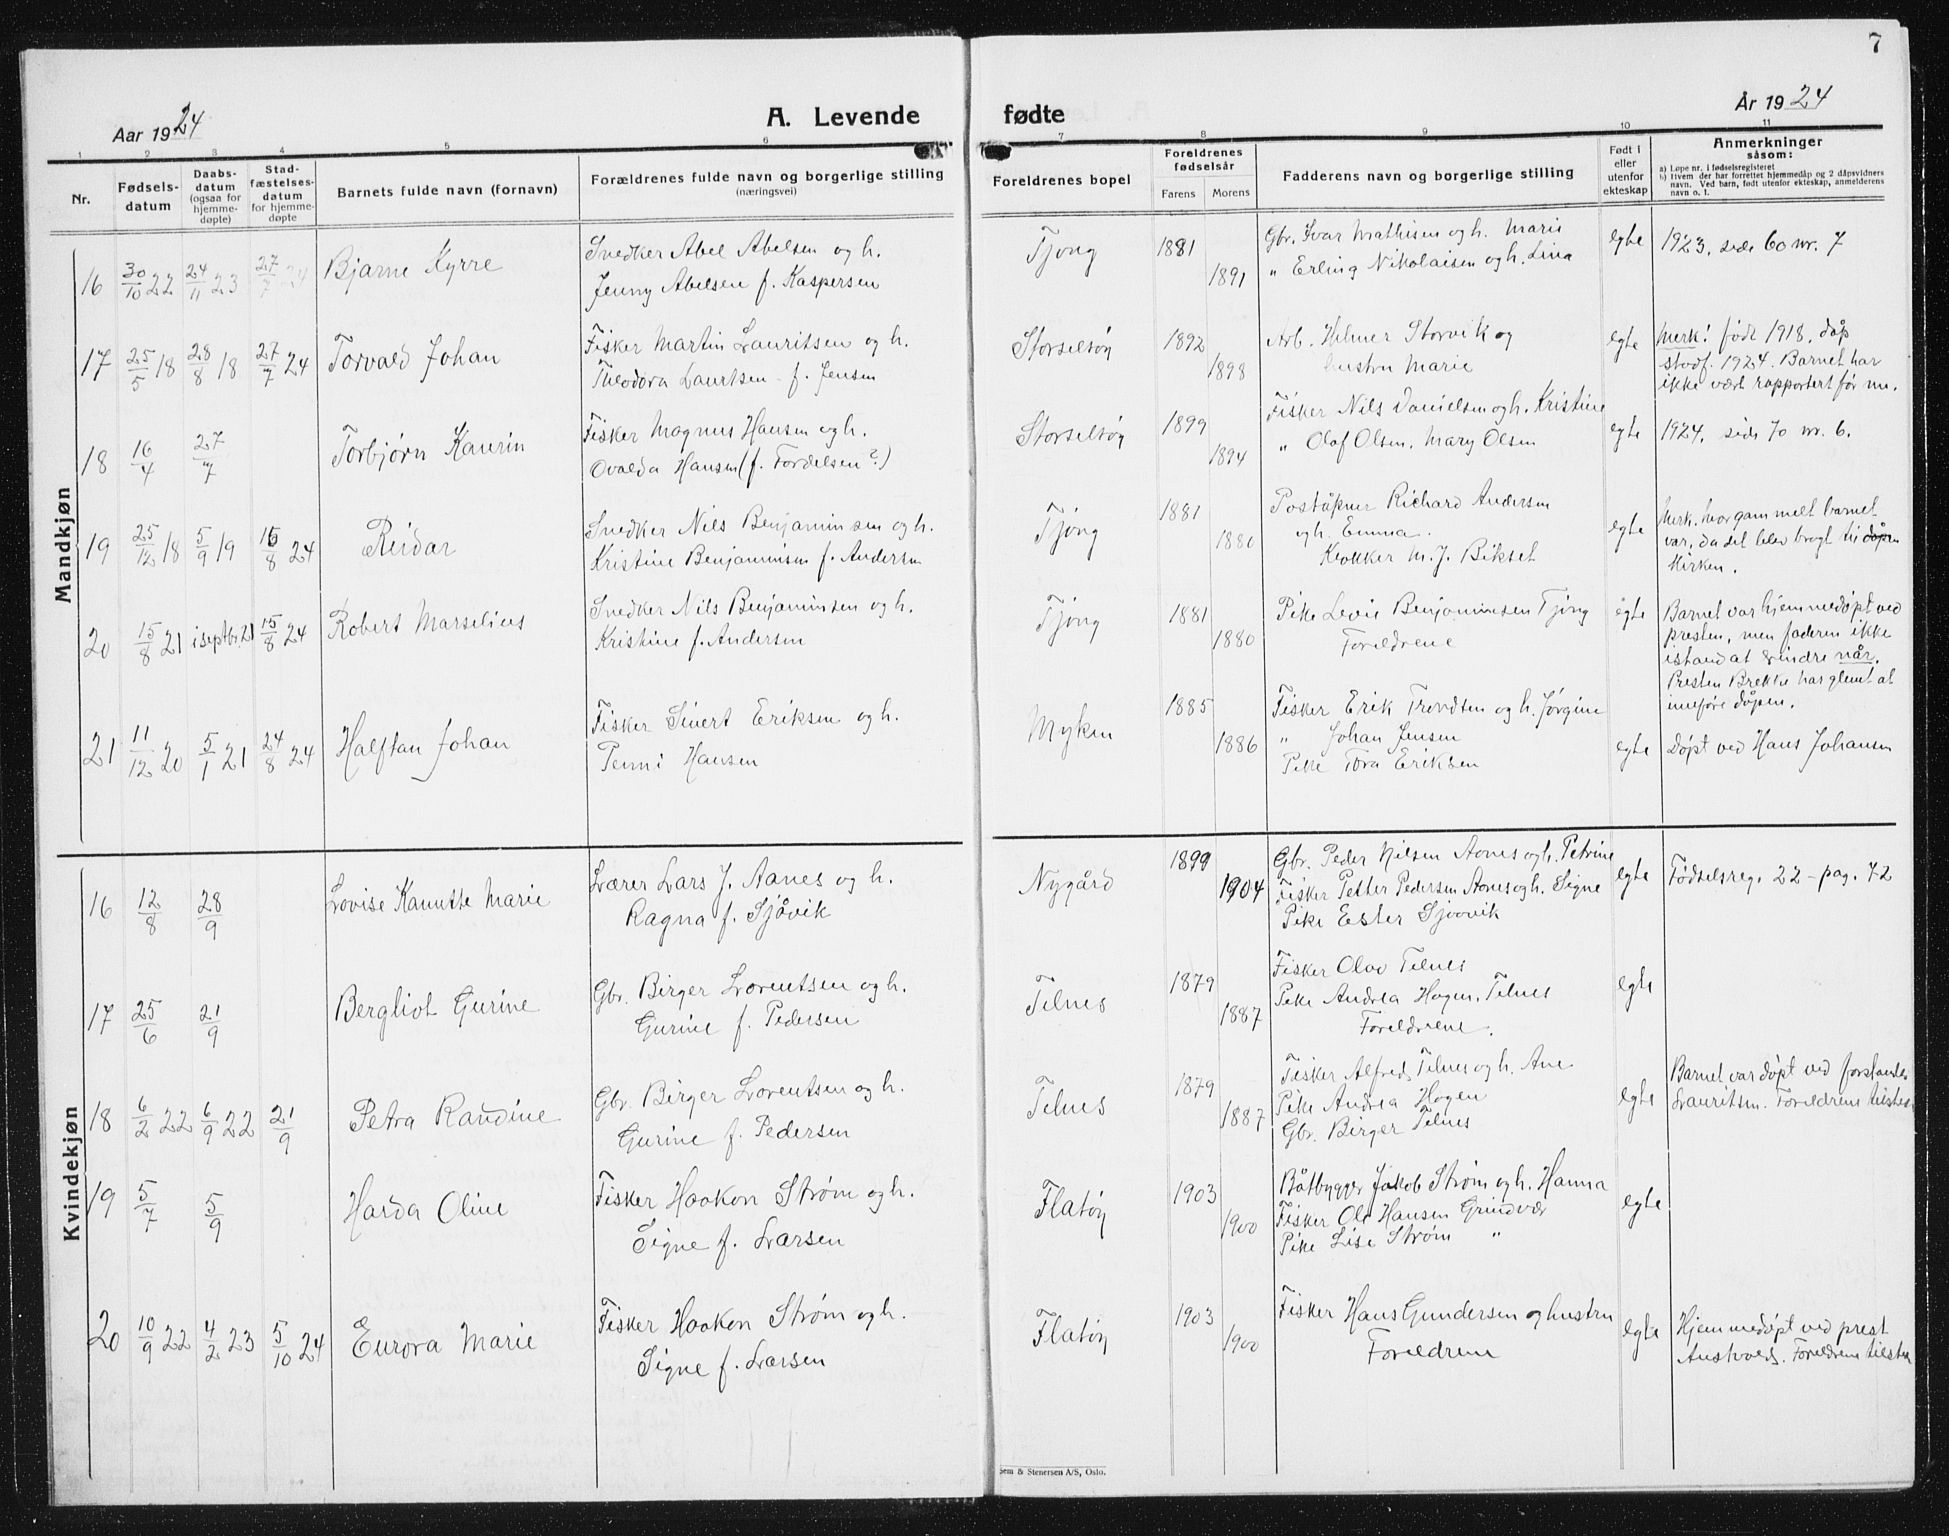 7
Aar 1924
A. Levende
fødte
År 1924
1 2 3 4 5 6 7 8 9 10 11
Nr.
Fødsels-
datum
Daabs-
datum
(ogsaa for
hjemme-
døpte)
Stad-
fæstelses-
datum
for hjemme-
døpte
Barnets fulde navn (fornavn)
Forældrenes fulde navn og borgerlige stilling
(næringsvei)
Foreldrenes bopel
Foreldrenes
fødselsår
Farens Morens
Fadderens navn og borgerlige stilling
Født i
eller
utenfor
ekteskap
Anmerkninger
såsom:
a) Løpe nr. i fødselsregisteret
b) Hvem der har forrettet hjemmedåp og 2 dåpsvidners
navn. Ved barn, født utenfor ekteskap, anmelderens
navn o. l.
Mandkjøn
16 30/10 22 24/11 23 27/7 24 Bjarne Kyrre
Snedker Abel Abelsen og h.
Jenny Abelsen f. Kaspersen
Tjong 1881 1891
Gbr. Ivar Mathisen og h. Marie
" Erling Nikolaisen og h. Lina
egte
1923, side 60 nr. 7
17 25/5 18 28/8 18 27/7 24 Torvald Johan
Fisker Martin Lauritsen og h.
Theodora Lauritsen f. Jensen
Storseløy 1892 1898
Arb. Hilmer Storvik og
hustru Marie
egte
Merk! født 1918, døp
stadf. 1924. Barnet har
ikke vært rapportert før nu.
18 16/4 27/7 Torbjørn Kaurin
Fisker Magnus Hansen og h.
Ovalda Hansen (f. Fordelsen?)
Storseløy 1899 1894
Fisker Nils Danielsen og h. Kristine
" Olaf Olsen, Mary Olsen
egte
1924, side 70 nr. 6.
19 25/12 18 5/9 19 16/8 24 Reidar
Snedker Nils Benjaminsen og h.
Kristine Benjaminsen f. Andersen
Tjong 1881 1880
Poståpner Richard Andersen
og h. Emma.
Klokker M. J. Bikset
egte
Merk, hvor gammelt barnet
var, da det blev bragt til dåpen
Kirken.
20 15/8 21 i septbr. 21 15/8 24 Robert Marselius
Snedker Nils Benjaminsen og h.
Kristine f. Andersen
Tjong 1881 1880
Pike Levie Benjaminsen Tjong
Foreldrene
egte
Barnet var hjemmedøpt ved
presten, men faderen ikke
istand at erindre når.
Presten Brekke har glemt at
innføre dåpen.
21 11/12 20 5/1 21 24/8 24 Halftan Johan
Fisker Sivert Eriksen og h.
Penni Hansen
Myken 1885 1886
Fisker Erik Trondsen og h. Jørgine
" Johan Jensen
Pike Tora Eriksen
egte
Døpt ved Hans Johansen
Kvindekjøn
16 12/8 28/9 Lovise Kanutte Marie
Lærer Lars J. Aanes og h.
Ragna f. Sjåvik
Nygård 1899 1904
Gbr. Peder Nilsen Aanes og h. Petrine
Fisker Petter Pedersen Aanes og h. Signe
Pike Ester Sjøovik
egte
Fødselsreg. 22 - pag. 72
17 25/6 21/9 Bergliot Gurine
Gbr. Birger Lorentsen og h.
Gurine f. Pedersen
Telnes 1879 1887
Fisker Olav Telnes
Pike Andrea Hagen, Telnes
Foreldrene.
egte
18 6/2 22 6/9 22 21/9 Petra Randine
Gbr. Birger Lorentsen og h.
Gurine f. Pedersen
Telnes 1879 1887
Fisker Alfred Telnes og h. Ane
Pike Andrea Hagen
Gbr. Birger Telnes
egte
Barnet var døpt ved forstander
Lauritsen. Foreldrene tilstede
19 5/7 5/9 Harda Oline
Fisker Haakon Strøm og h.
Signe f. Larsen
Flatøy 1903 1900
Båtbygger Jakob Strøm og h. Hanna
Fisker Ole Hansen Grindvær
Pike Lise Strøm "
egte
20 10/9 22 4/2 23 5/10 24 Eurora Marie
Fisker Haakon Strøm og h.
Signe f. Larsen
Flatøy 1903 1900
Fisker Hans Gundersen og hustru
Foreldrene
egte
Hjemmedøpt ved prest
Foreldrene tilstede
Sem & Stenersen A/S, Oslo.